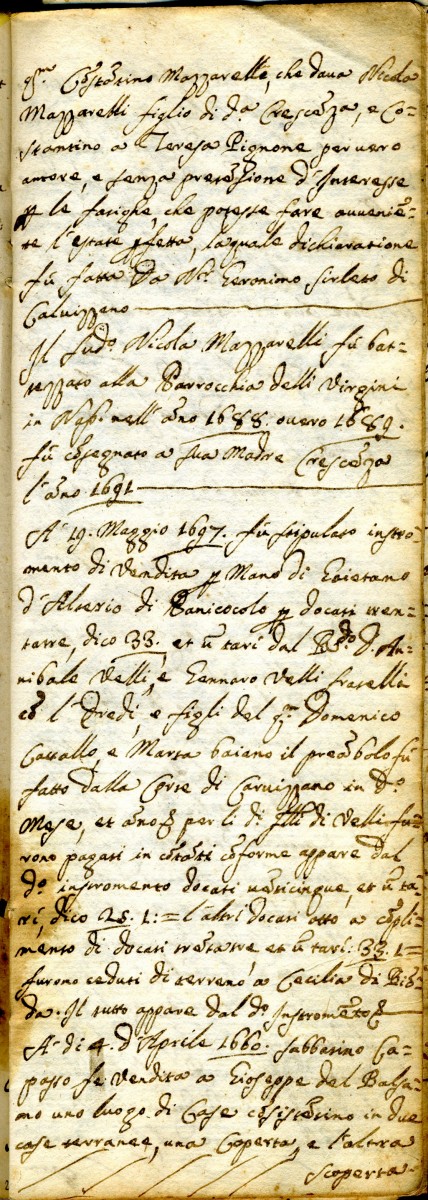 qm Costãtino Mazzarelli, che dava Nicola
Mazzarelli figlio di d.a Crescẽza, e Co=
stantino a Teresa Pignone per vero
amore, e senza pretẽsione d'Interesse
p le farighe, che potesse fare avveniẽ=
te l'estate pfetta, la quale dichiaratione
fù fatta da Nr. Geronimo Sirleto di
Calvizzano
Il sud.o Nicola Mazzarelli fù bat=
tezzato alla Parrocchia delli Virgini
in Nap. nell'ãno 1688. overo 1689.
fù cõsegnato a sua Madre Crescẽza
l'ãno 1691
A' 19. Maggio 1697. fù stipulato instro=
mento di vendita p mano di Gaietano
d'Alterio di Panicocolo p docati tren=
tatre, dico 33. et ũ tarì dal Rdo. D. An=
nibale Velli, e Gennaro Velli fratelli
cõ l'Eredi, e figli del qm Domenico
Cavallo, e Marta baiano il preãbolo fù
fatto dalla Corte di Carvizzano in d.o
Mese, et ãno per li di fllĩ di Velli fu=
rono pagati in cõtãti cõforme appare dal
d.o instromento docati vẽticinque, et ũ ta=
rì, dico 25. 1.= l'altri docati otto a cõpli=
mento di docati trẽtatre, et ũ tarì: 33. 1=
furono ceduti di terreno a Cecilia di
da. Il tutto appare dal d.o Instromẽto
A' di 4. d'Aprile 1660. Sabbatino Ca=
passo fe vendita a Gioseppe del Balsa=
mo uno luogo di Case cõsistẽtino in due
case terranee, una Coperta, e l'altra
scoperta